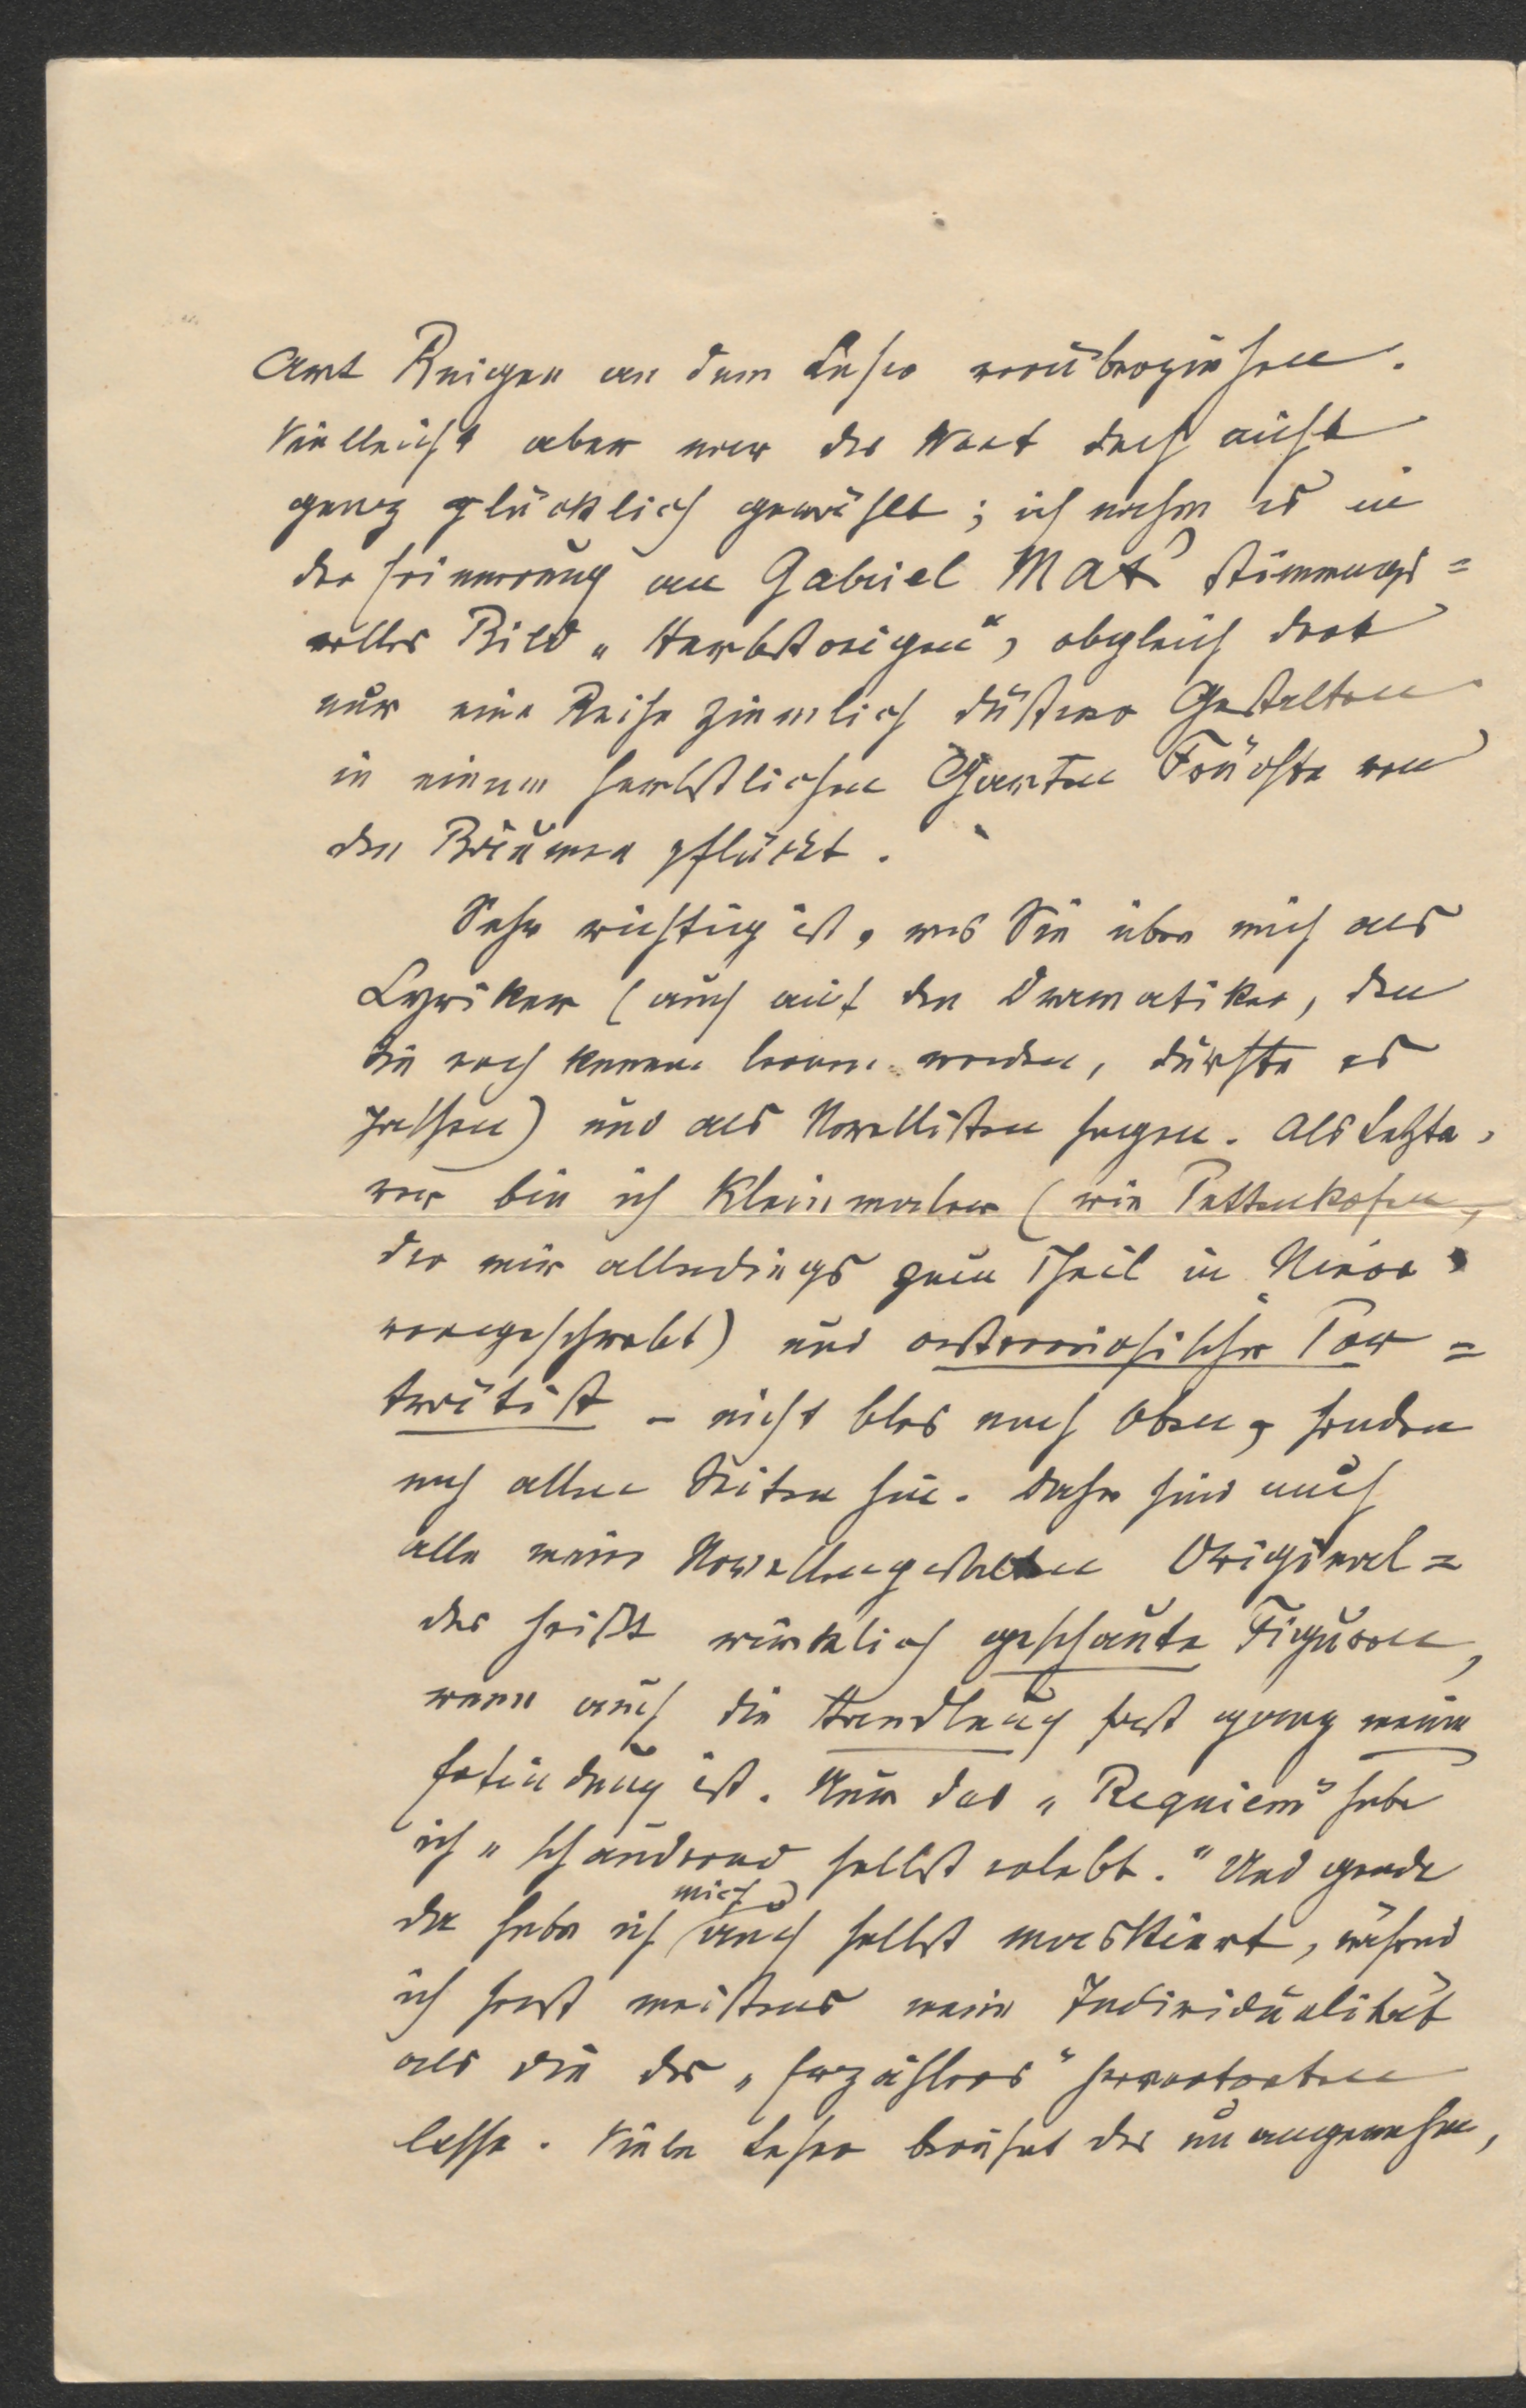 Art Reigen an dem Leser vorüberziehen.
Vielleicht aber war das Wort doch nicht
ganz glücklich gewählt; ich nahm es in
der Erinnerung an Gabriel Max' stimmungs=
volles Bild „Herbstreigen“, obgleich dort
nur eine Reihe ziemlich düsterer Gestalten
in einem herbstlichen Garten Früchte von
den Bäumen pflückt.
Sehr richtig ist, was Sie über mich als
Lyriker (auch auf den Dramatiker, den
Sie noch kennen lernen werden, dürfte es
passen) und als Novellisten sagen. Als Letzte,
rer bin ich Kleinmaler (wie Pettenkofen,
der mir allerdings zum Theil in
vorgeschwebt) und oesterreichischer Por=
trätist – nicht blos nach Oben, sondern
nach allen Seiten hin. Daher sind auch
alle meine Novellengestalten Original=
das heißt wirklich geschaute Figuren,
wenn auch die Handlung fast ganz meine
Erfindung ist. Nur das „Requiem“ habe
ich „schaudernd selbst erlebt.“ Und gerade
da habe ich mich auch selbst maskiert, während
ich sonst meistens meine Individualität
als die des „Erzählers“ hervortreten
lasse. Viele Leser berührt das unangenehm,